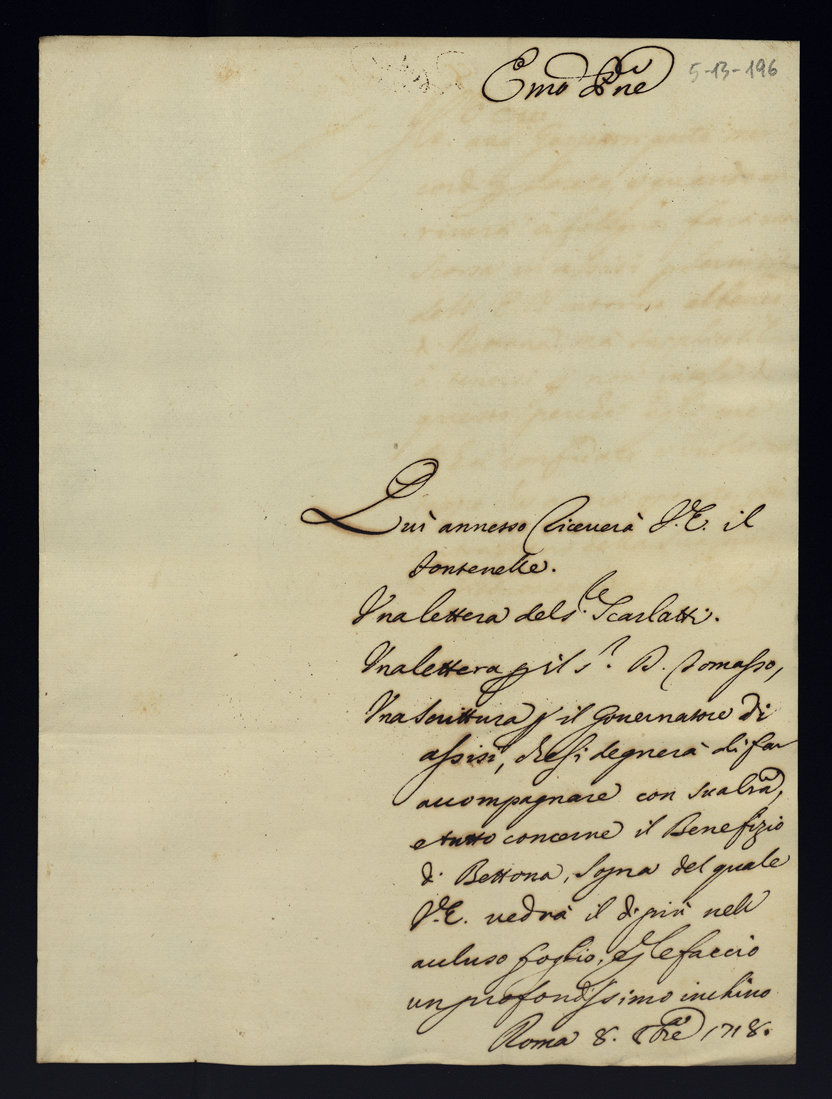 Emo Pne
5-13-196
Qui annesso riceverà V.E. il
Fontenelle.
Una lettera del s.re Scarlatti.
Una lettera p il s.r D. Tomasso,
Una scrittura p il Governatore di
Assisi, che si degnerà di far
accompagnare con sua lra,
e tutto concerne il Benefizio
di Bettona, sopra del quale
V.E. vedrà il di più nell
accluso foglio, e le faccio
un profondissimo inchino
Roma 8. 1718.